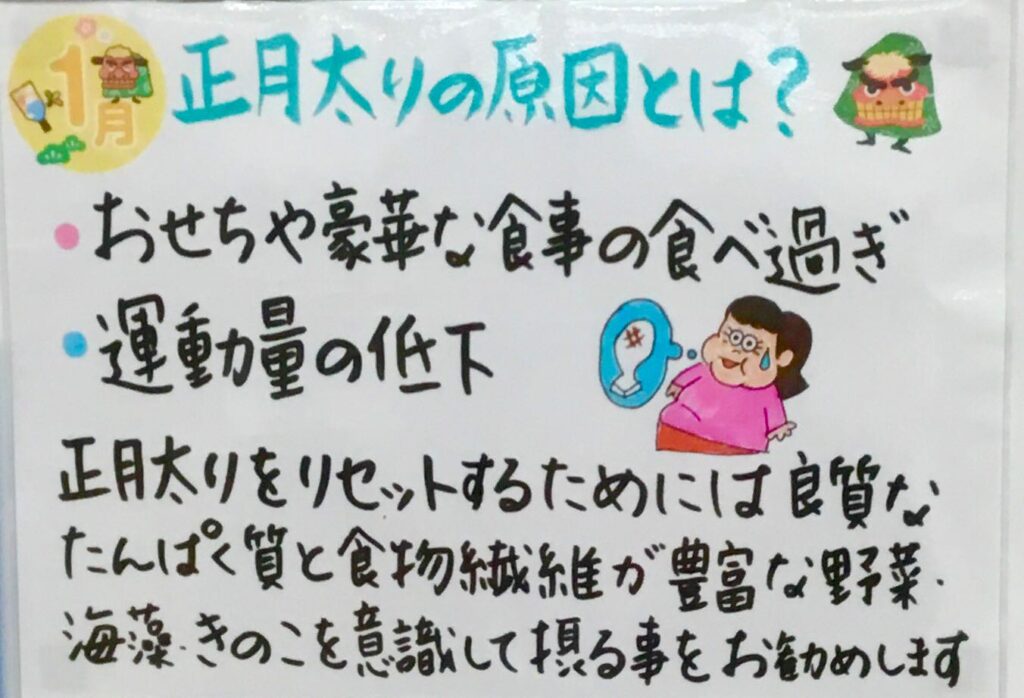 1月
正月太りの原因とは?
・おせちや豪華な食事の食べ過ぎ
・運動量の低下
正月太りをリセットするためには良質な
たんぱく質と食物繊維が豊富な野菜・
海藻・きのこを意識して摂る事をお勧めします